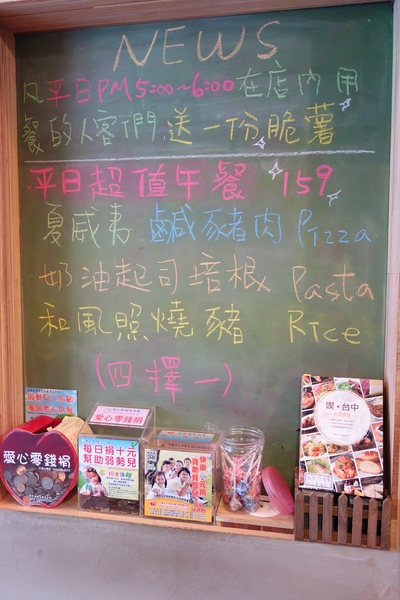 NEWS
凡平日PM5:00~6:00在店內用
餐的人客們,送一份脆薯
平日超值午餐 159
夏威夷 鹹豬肉 Pizza
奶油起司培根 Pasta
和風照燒豬 Rice
(四擇一)
愛心零錢捐
愛心零錢捐
每日捐十元
幫助弱勢兒
喫·台中